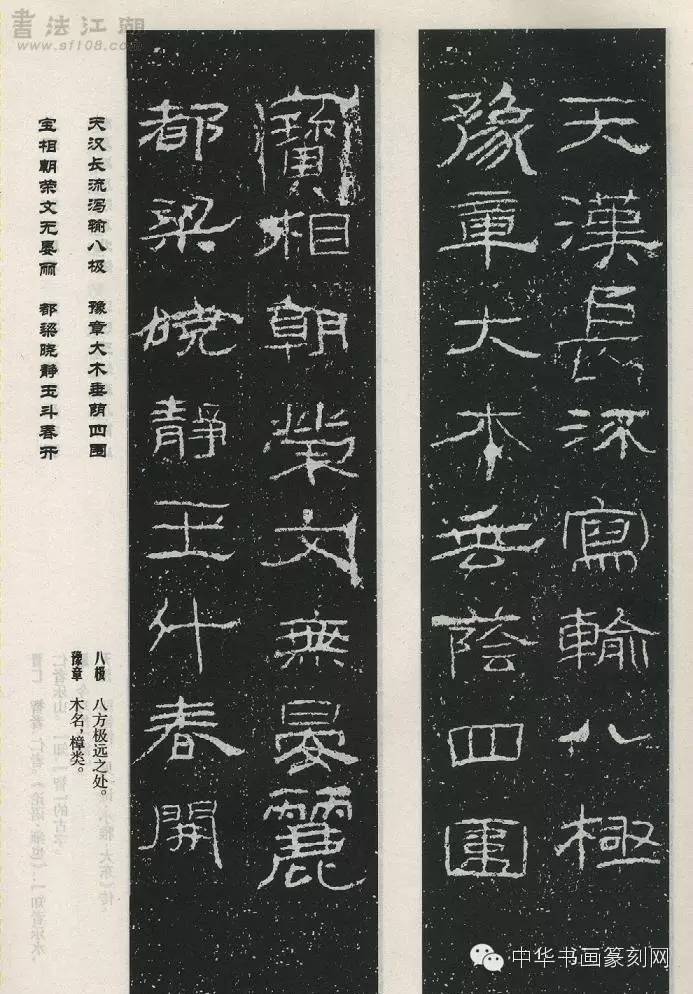 書法江湖
www.sf108.com
天漢長流寫輸八極
豫章大木垂蔭四圍
寶相朝榮文無晏麗
都梁曉靜玉斗春開
天汉长流泻输八极 豫章大木垂荫四围
宝相朝荣文无晏丽 都梁晓静玉斗春开
八极 八方极远之处。
豫章 木名，樟类。
中华书画篆刻网